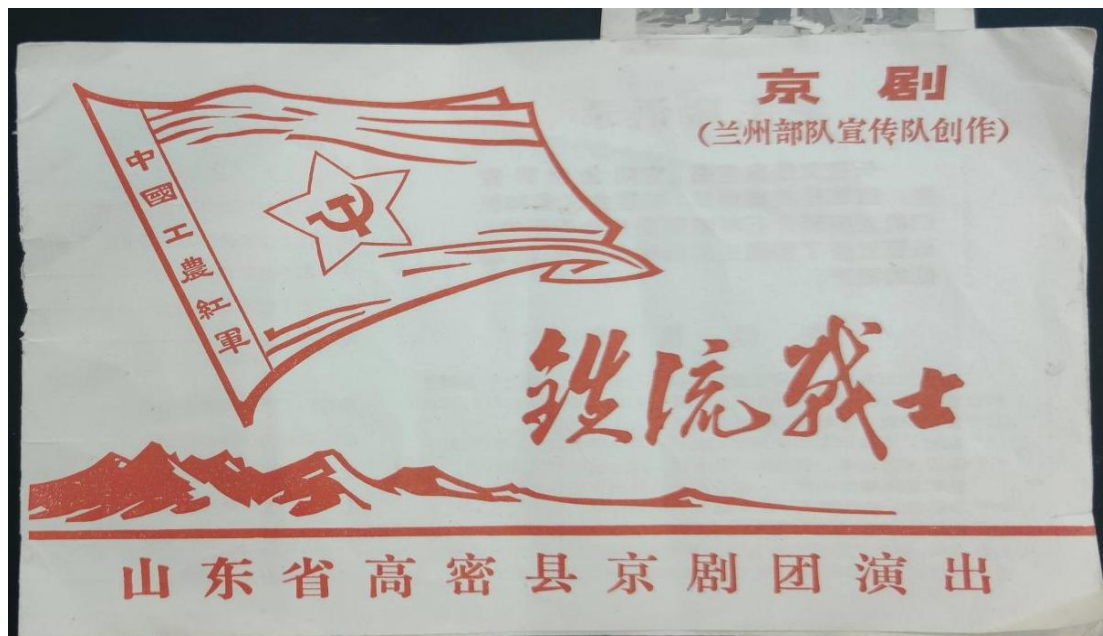 京剧
(兰州部队宣传队创作)
中國工農紅軍
铁流战士
山东省高密县京剧团演出